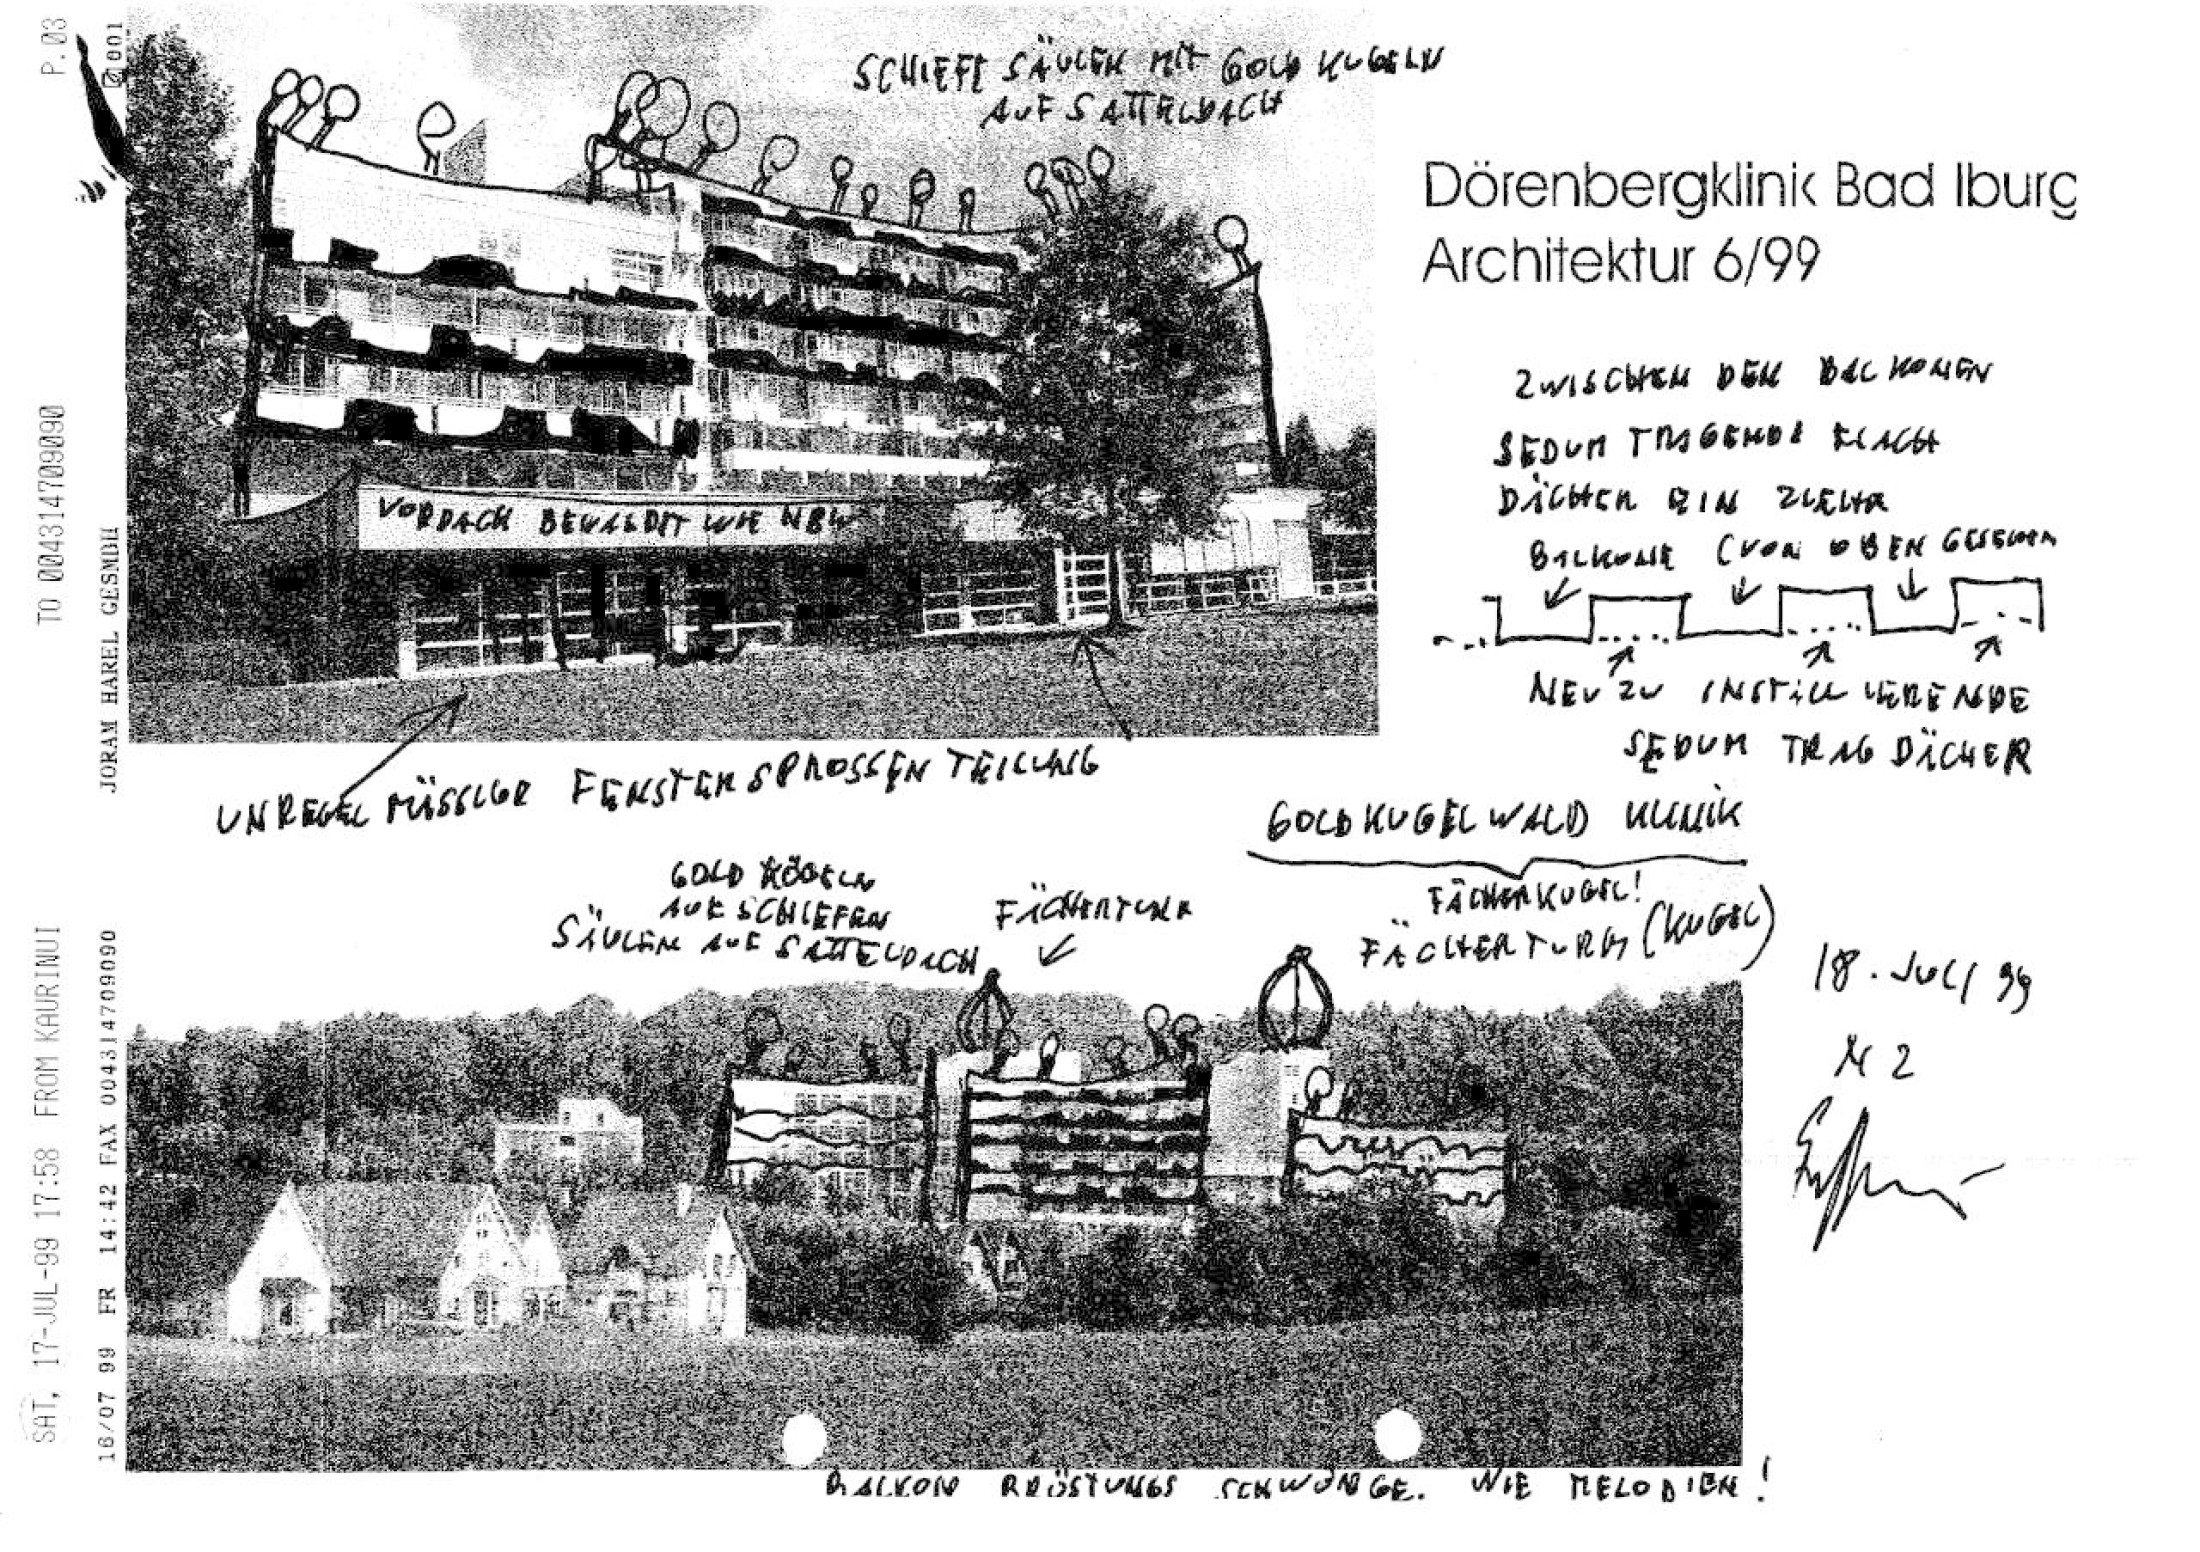 P.03
TO 00431470909​0
SAT, 17-JUL-99 17:58 FROM KAURINUI
001
JORAM HAREL GESMBH
16/07 99 FR 14:42 FAX 004314709090
SCHIEFE SÄULEN MIT GOLD KUGELN
AUF SATTELDACH
Dörenbergklinik Bad Iburg
Architektur 6/99
ZWISCHEN DEN BALKONEN
SEDUM TRAGENDE FLACH
DÄCHER EIN
BALKONE (VON OBEN GESEHEN
NEU ZU INSTALLIERENDE
SEDUM TRAG DÄCHER
VORDACH BEWALDET WIE
UNREGELMÄSSIGE FENSTERSPROSSEN TEILUNG
GOLDKUGELWALD KLINIK
FÄCHERKUGEL!
FÄCHERTURM (KUGEL)
GOLD KUGELN
AUF SCHIEFEN
SÄULEN AUF SATTELDACH
FÄCHERTURM
18. JULI 99
N 2
BALKON BRÜSTUNGS SCHWÜNGE. WIE MELODIEN!